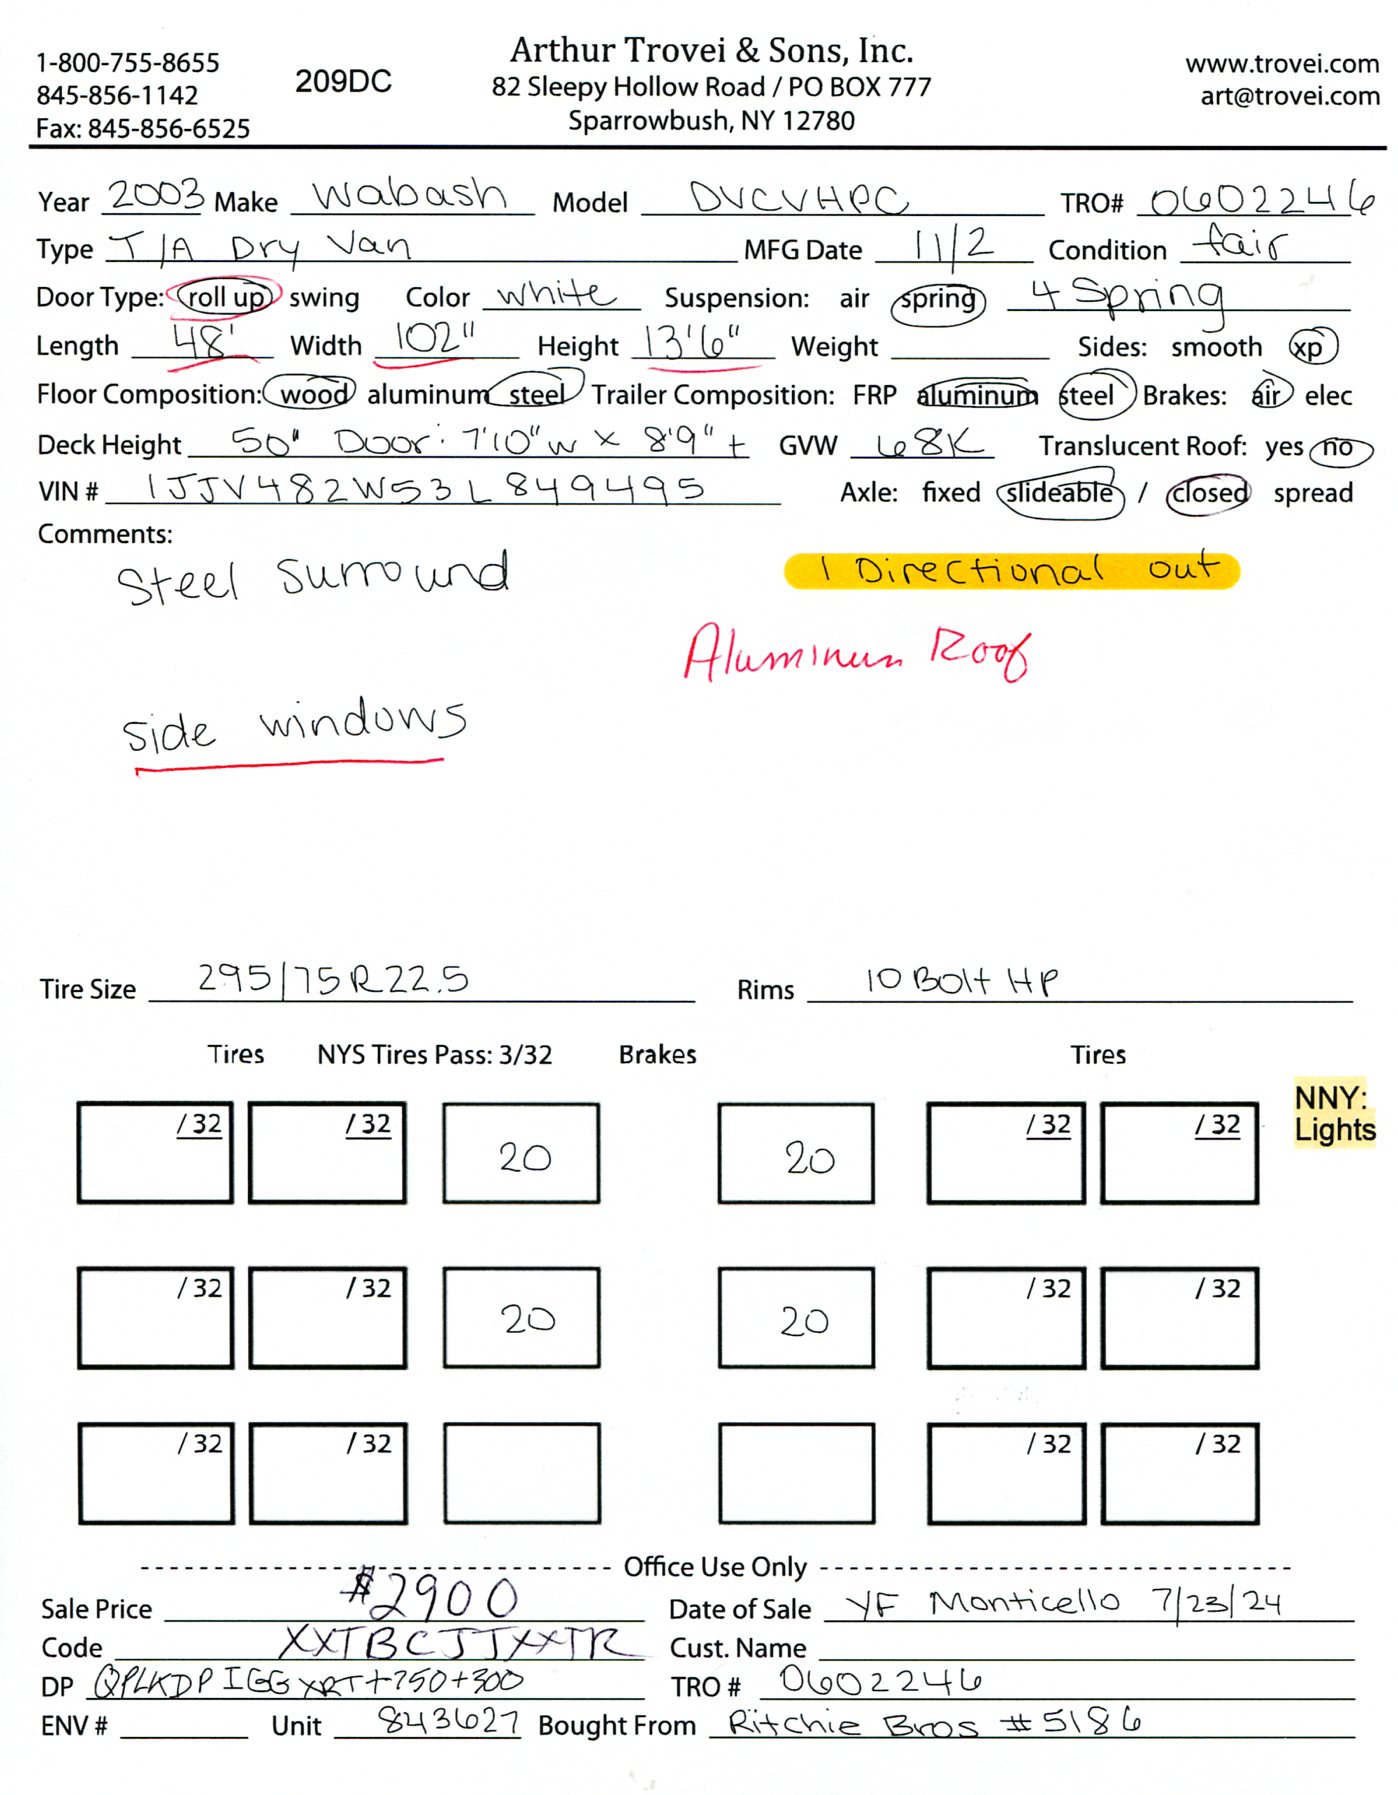 1-800-755-8655
845-856-1142
Fax: 845-856-6525
209DC
Arthur Trovei & Sons, Inc.
82 Sleepy Hollow Road / PO BOX 777
Sparrowbush, NY 12780
www.trovei.com
art@trovei.com
Year 2003 Make Wabash Model DVCVHPC TRO# 0602246
Type T/A Dry Van MFG Date 11/2 Condition fair
Door Type: roll up swing Color white Suspension: air spring 4 Spring
Length 48' Width 102" Height 13'6" Weight Sides: smooth xp
Floor Composition: wood aluminum steel Trailer Composition: FRP aluminum steel Brakes: air elec
Deck Height 50" Door: 7'10"w x 8'9"t GVW 68K Translucent Roof: yes no
VIN # 1JJV482W53L849495 Axle: fixed slideable / closed spread
Comments:
Steel Surround
1 Directional out
Aluminum Roof
side windows
Tire Size 295/75R22.5 Rims 10 Bolt HP
Tires NYS Tires Pass: 3/32 Brakes Tires
NNY:
Lights
/32 /32 20 20 /32 /32
/32 /32 20 20 /32 /32
/32 /32 /32 /32
Office Use Only
Sale Price $2900 Date of Sale YF Monticello 7/23/24
Code XXTBCJJXXTR Cust. Name
DP QPLKDPIGGXRT+750+300 TRO # 0602246
ENV # Unit 843627 Bought From Ritchie Bros #5186